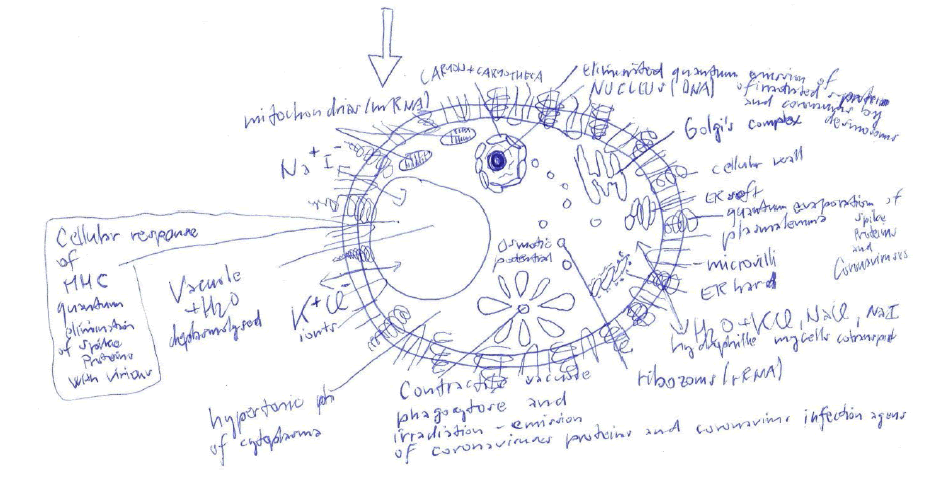 CARYON + CARYOTHECA
eliminated quantum emission of
NUCLEUS (DNA) of irradiated s-protein
and coronavirus by
desmosoms
mitochondrias (mRNA)
Golgi's complex
Na+ I-
cellular wall
ER soft
quantum evaporation of
plasmalemma
spike
proteins
and
Coronaviruses
Cellular response
of
MHC
quantum
elimination
of spike
proteins
with virions
Osmotic
potential
microvilli
ER hard
Vacuole
+H2O
deplasmolysed
K+Cl-
ionts
H2O + KCl, NaCl, NaI
hydrophille mycells cotransport
ribozoms (rRNA)
hypertonic pH
of cytoplasma
Contractive vacuole
phagocytose and
irradiation - emission
of coronaviruses proteins and coronavirus infection agens